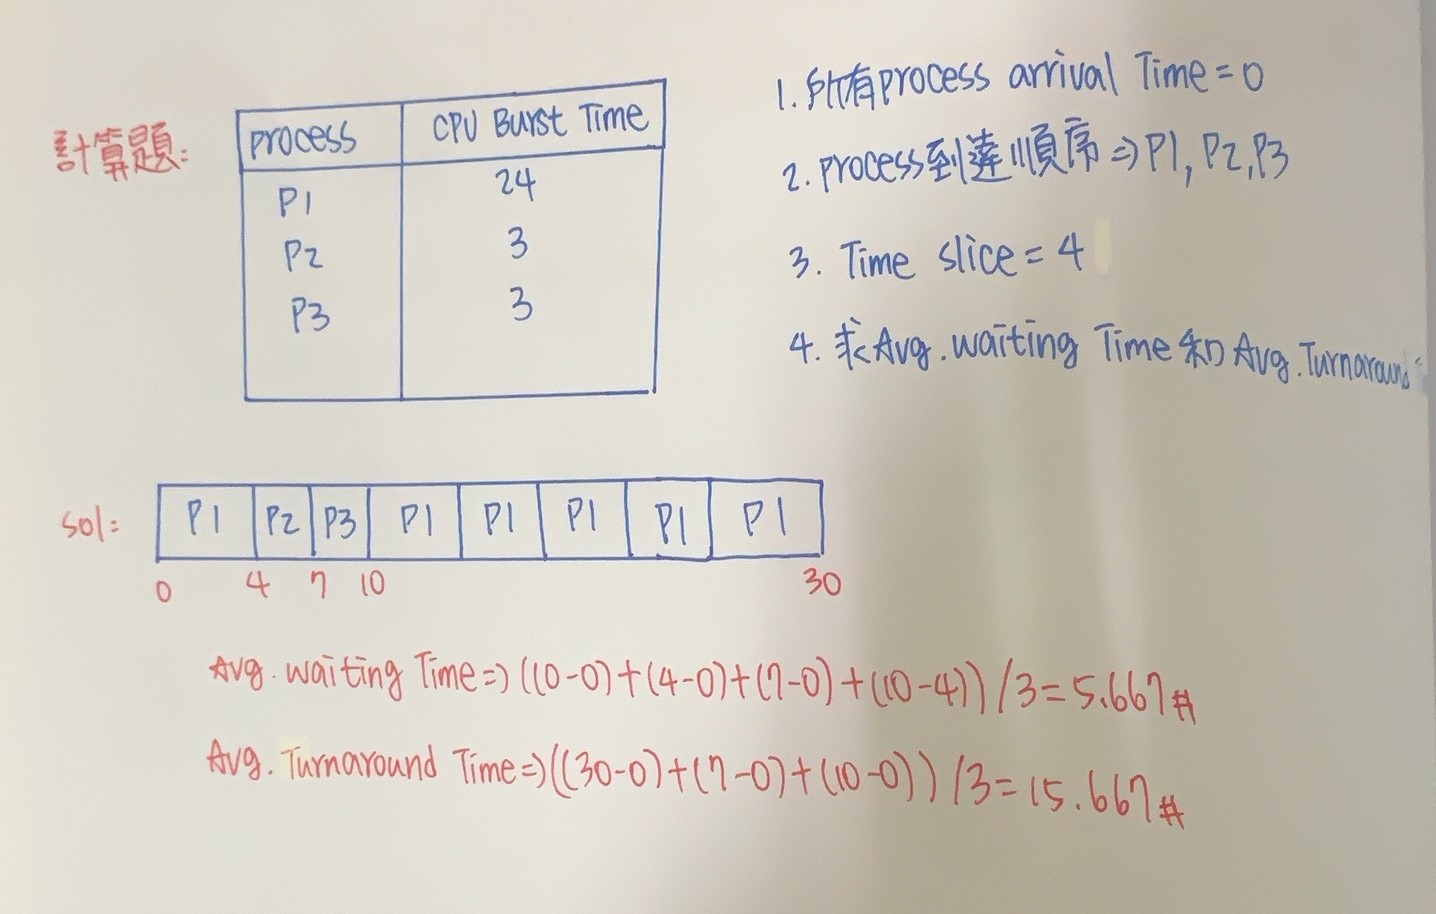 計算題:
process CPU Burst Time
P1 24
P2 3
P3 3
1. 所有process arrival Time = 0
2. process到達順序 ⇒ P1, P2, P3
3. Time slice = 4
4. 求Avg. waiting Time 和 Avg. Turnaround
sol:
P1 P2 P3 P1 P1 P1 P1 P1
0 4 7 10 30
Avg. waiting Time ⇒ ((10-0)+(4-0)+(7-0)+(10-4)) / 3 = 5.667 #
Avg. Turnaround Time ⇒ ((30-0)+(7-0)+(10-0)) / 3 = 15.667 #